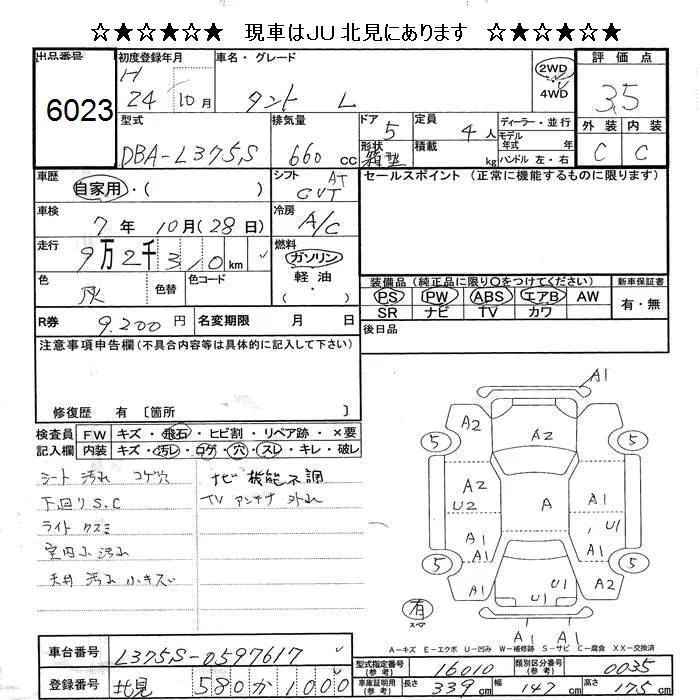 ☆★☆★☆ 現車はＪＵ北見にあります ☆★☆★☆
出品番号 6023
初度登録年月 H 24年 10月
車名・グレード タント L
2WD 4WD
評価点 3.5
外装 C 内装 C
型式 DBA-L375S
排気量 660 cc
ドア 5 形状 箱型
定員 4人 積載 kg
ディーラー・並行
モデル年式 年
ハンドル 左・右
車歴 自家用・( )
シフト AT CVT
セールスポイント（正常に機能するものに限ります）
車検 7年 10月(28日)
冷房 A/C
走行 9万2千310 km
燃料 ガソリン 軽油 ・( )
色 灰 色替 色コード
装備品（純正品に限り〇をつけてください） 新車保証書
PS PW ABS エアB AW 有・無
SR ナビ TV カワ
R券 9.200円 名変期限 月 日
後日品
注意事項申告欄（不具合内容等は具体的に記入して下さい）
修復歴 有 [箇所 ]
検査員記入欄
FW キズ・飛石・ヒビ割・リペア跡・×要
内装 キズ・汚レ・コゲ・穴・スレ・キレ・破レ
シート 汚れ コゲ穴
下回りS.C
ライト クスミ
室内小汚れ
天井 汚れ 小キズ
ナビ 機能不調
TV アンテナ 外れ
A1
A2
A2
5
5
A2
U2
A
A
A1
U1
A1
A1
5
5
A1
U1
U1
A2
A1 A1
有
スペア
A－キズ E－エクボ U－凹み W－補修跡 S－サビ C－腐食 XX－交換済
車台番号 L375S-0597617
登録番号 北見 580 か 1000
型式指定番号（参考） 16010 類別区分番号（参考） 0035
車庫証明用（参考） 長さ 339cm 幅 147cm 高さ 175cm